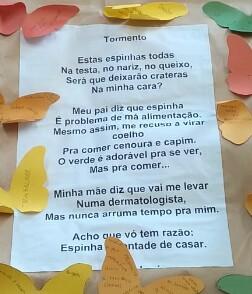 Tormento
Estas espinhas todas
Na testa, no nariz, no queixo,
Será que deixarão crateras
Na minha cara?
Meu pai diz que espinha
É problema de má alimentação.
Mesmo assim, me recuso a virar
coelho
Pra comer cenoura e capim.
O verde é adorável pra se ver,
Mas pra comer...
Minha mãe diz que vai me levar
Numa dermatologista,
Mas nunca arruma tempo pra mim.
Acho que vó tem razão:
Espinha ntade de casar.